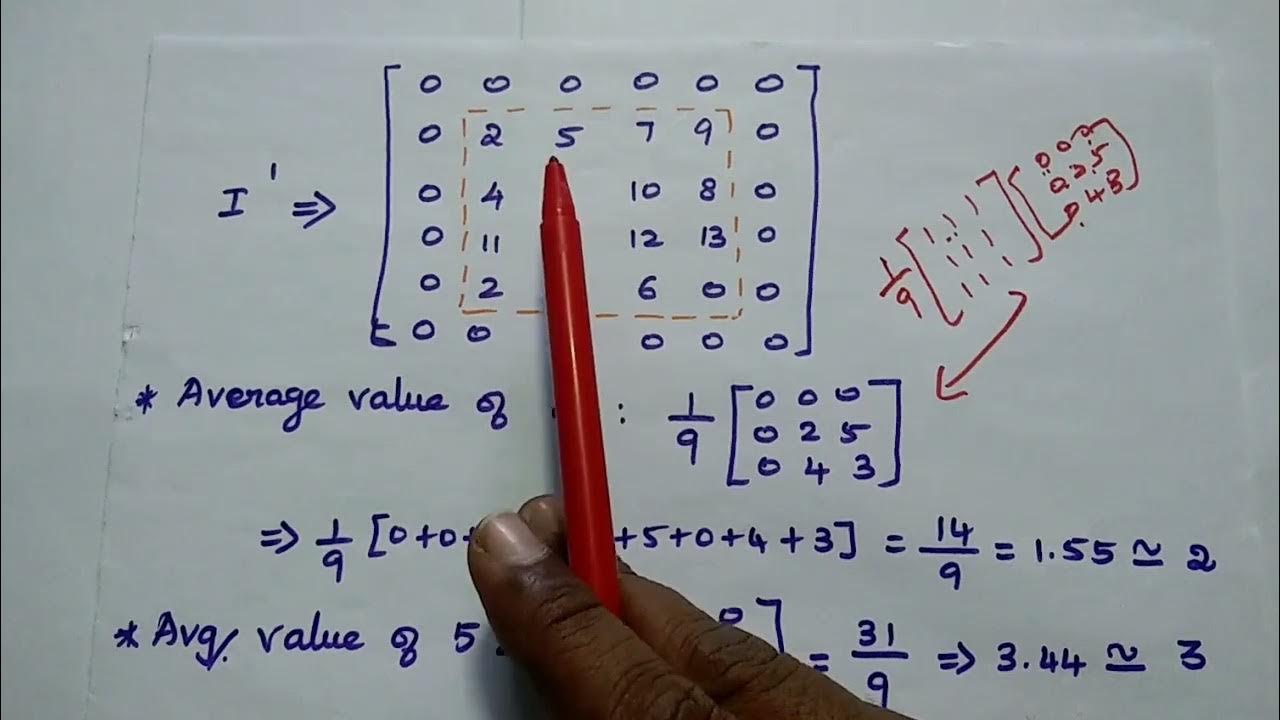 0 0 0 0 0 0
0 2 5 7 9 0
I' ⇒ 0 4 10 8 0
0 11 12 13 0
0 2 6 0 0
0 0 0 0 0
1/9 [1 1 1 1 1 1 1 1 1] [0 0 0 0 2 5 0 4 3]
* Average value of : 1/9 [0 0 0
0 2 5
0 4 3]
⇒ 1/9 [0+0+ +5+0+4+3] = 14/9 = 1.55 ≃ 2
* Avg. value of 5 0] = 31/9 ⇒ 3.44 ≃ 3